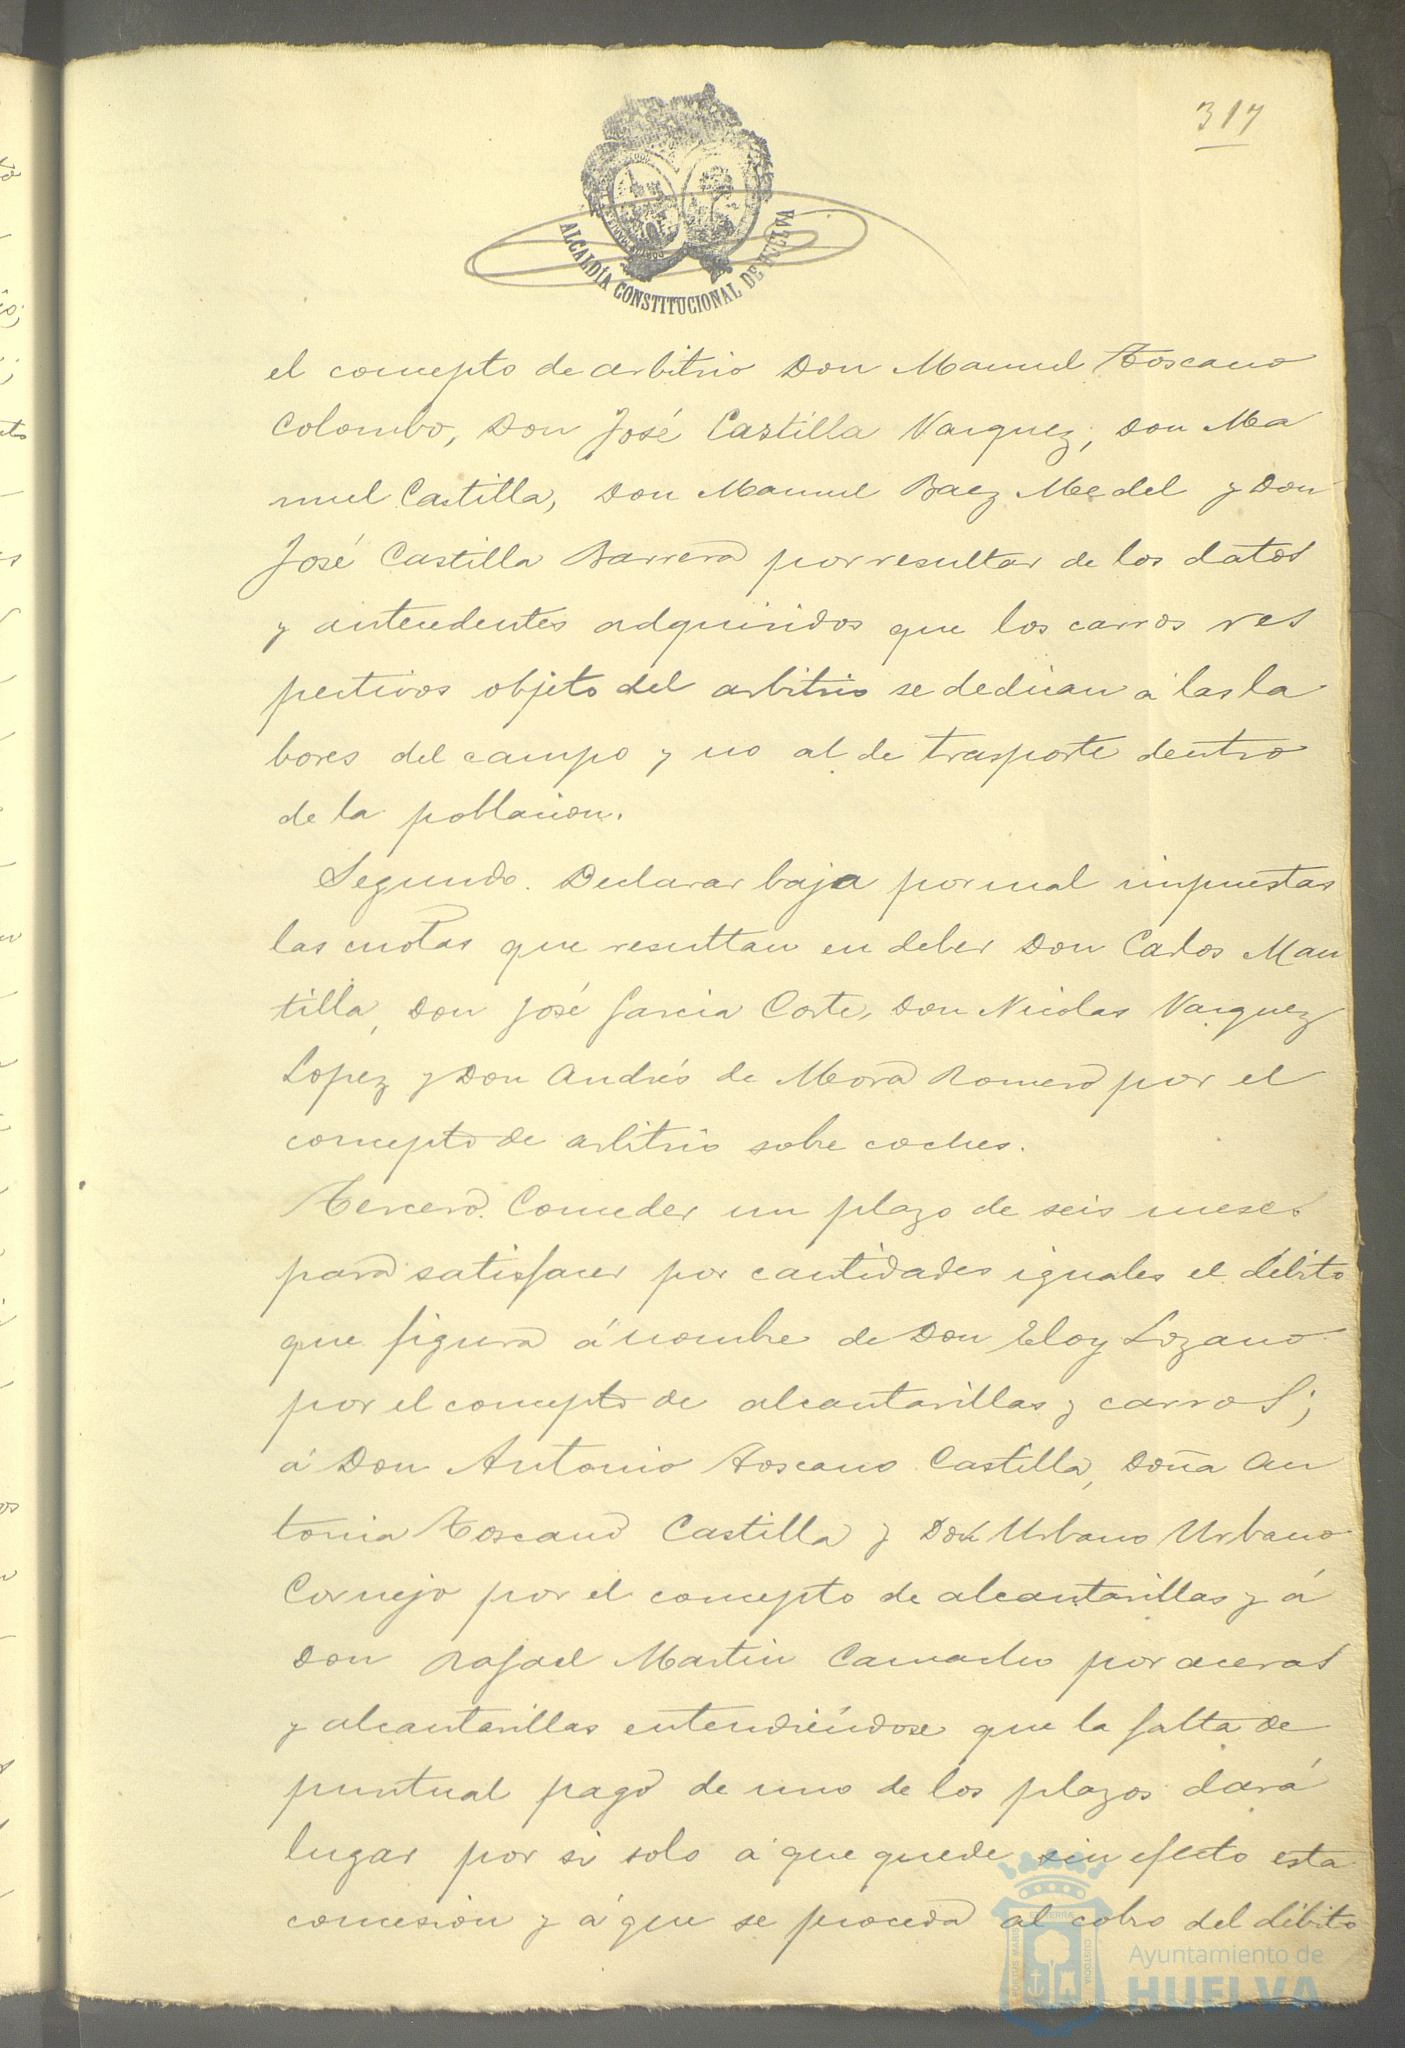 317
ALCALDÍA CONSTITUCIONAL DE HUELVA
el concepto de arbitrio Don Manuel Toscano
Colombo, Don José Castilla Vazquez, Don Ma
nuel Castilla, Don Manuel Baez Medel y Don
José Castilla Barrera por resultar de los datos
y antecedentes adquiridos que los carros res
pectivos objeto del arbitrio se dedican á las la
bores del campo y no al de trasporte dentro
de la poblacion.
Segundo. Declarar baja por mal impuestas
las cuotas que resultan en deber Don Carlos Man
tilla, Don José Garcia Corte, Don Nicolas Vazquez
Lopez y Don Andrés de Mora Romero por el
concepto de arbitrio sobre coches.
Tercero. Conceder un plazo de seis meses
para satisfacer por cantidades iguales el débito
que figura á nombre de Don Eloy Lozano
por el concepto de alcantarillas y carros;
á Don Antonio Toscano Castilla, Doña An
tonia Toscano Castilla y Don Urbano Urbano
Cornejo por el concepto de alcantarillas y á
Don Rafael Martin Camacho por aceras
y alcantarillas entendiéndose que la falta de
puntual pago de uno de los plazos dará
lugar por si solo á que quede sin efecto esta
concesión y á que se proceda al cobro del débito
Ayuntamiento de
HUELVA